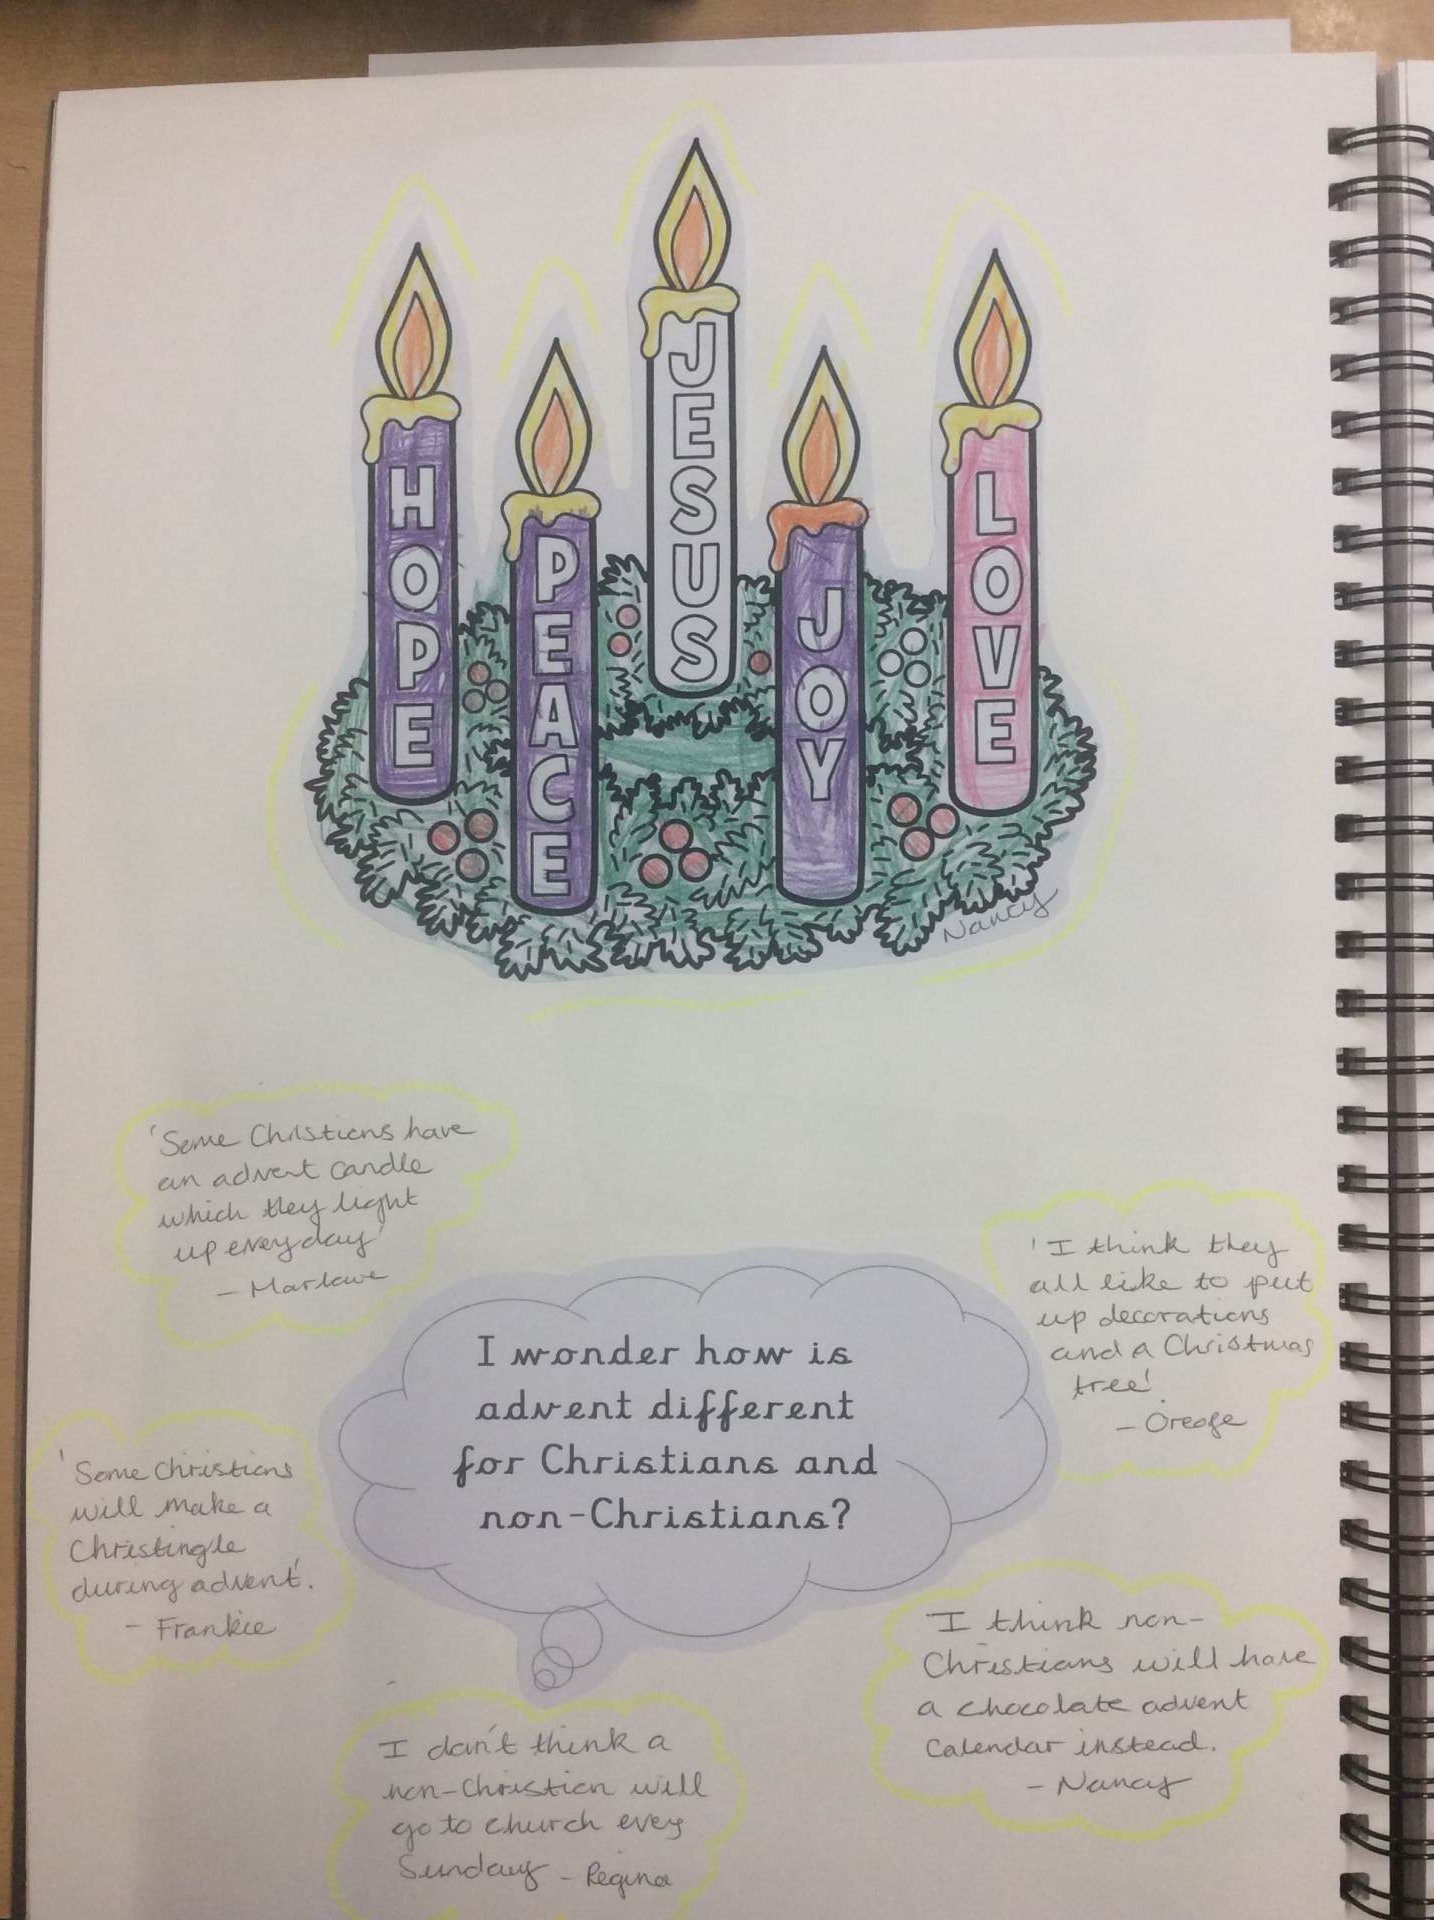 HOPE
PEACE
JESUS
JOY
LOVE
Nancy
'Some Christians have
an advent candle
which they light
up everyday'
- Marlowe
'I think they
all like to put
up decorations
and a Christmas
tree'.
- Oreofe
I wonder how is
advent different
for Christians and
non-Christians?
'Some Christians
will make a
Christingle
during advent'.
- Frankie
I think non-
Christians will have
a chocolate advent
Calendar instead.
- Nancy
I don't think a
non-Christian will
go to church every
Sunday - Regina